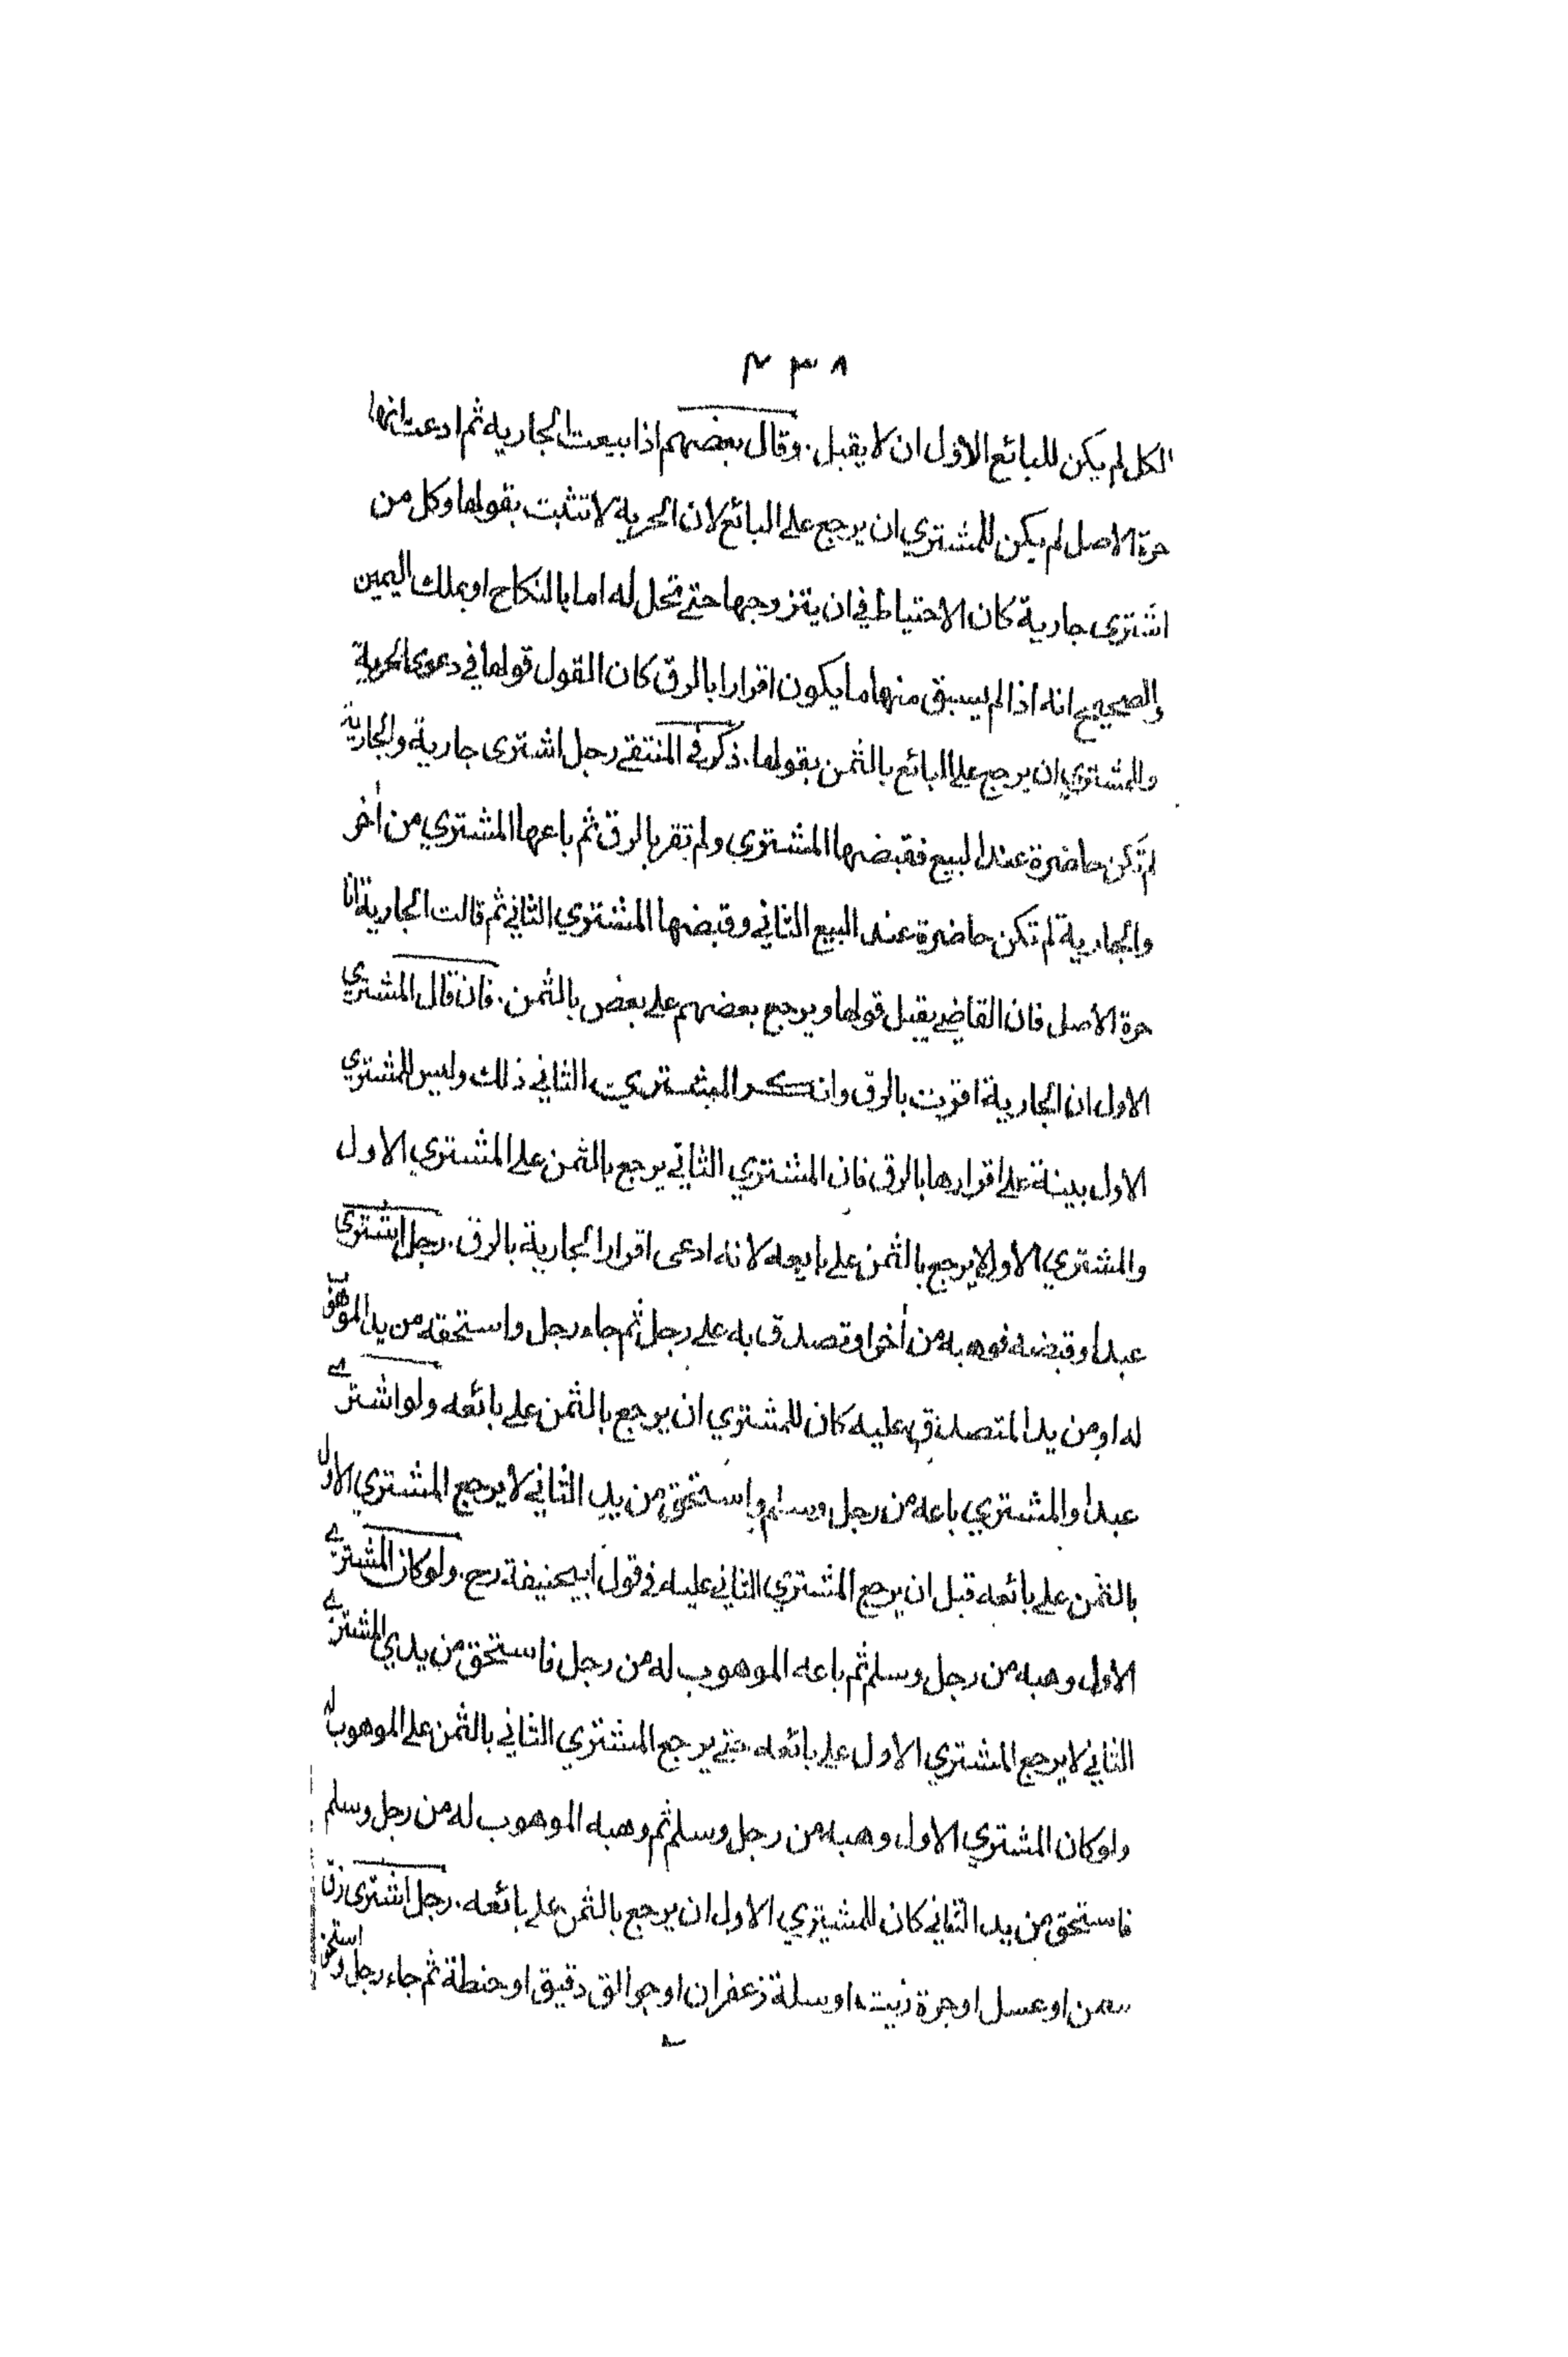 ٤٣٨
الكل لم يكن للبائع الاول ان لا يقبل. وقال بعضهم اذا بيعت الجارية ثم ادعت انها
حرة الاصل لم يكن للمشتري ان يرجع على البائع لان الحرية لا تثبت بقولها وكل من
اشترى جارية كان الاحتياط في ان يتزوجها حتى تحل له اما بالنكاح او بملك اليمين
والصحيح انه اذا لم يسبق منها ما يكون اقرارا بالرق كان القول قولها في دعوى الحرية
وللمشتري ان يرجع على البائع بالثمن بقولها. ذكر في المنتقى رجل اشترى جارية والجارية
لم تكن حاضرة عند البيع فقبضها المشتري ولم تقر بالرق ثم باعها المشتري من أخر
والجارية لم تكن حاضرة عند البيع الثاني وقبضها المشتري الثاني ثم قالت الجارية انا
حرة الاصل فان القاضي يقبل قولها ويرجع بعضهم على بعض بالثمن. فان قال المشتري
الاول ان الجارية اقرت بالرق وانكر المشتري الثاني ذلك وليس للمشتري
الاول بينة على اقرارها بالرق فان المشتري الثاني يرجع بالثمن على المشتري الاول
والمشتري الاول لا يرجع بالثمن على بايعه لانه ادعى اقرار الجارية بالرق. رجل اشترى
عبدا وقبضه فوهبه من أخر او تصدق به على رجل ثم جاء رجل واستحقه من يد الموهوب
له او من يد المتصدق عليه كان للمشتري ان يرجع بالثمن على بائعه ولو اشترى
عبدا والمشتري باعه من رجل وسلم واستحق من يد الثاني لا يرجع المشتري الاول
بالثمن على بائعه قبل ان يرجع المشتري الثاني عليه في قول ابيحنيفة رح. ولو كان المشتري
الاول وهبه من رجل وسلم ثم باعه الموهوب له من رجل فاستحق من يدي المشتري
الثاني لا يرجع المشتري الاول على بائعه حتى يرجع المشتري الثاني بالثمن على الموهوب له
ولو كان المشتري الاول وهبه من رجل وسلم ثم وهبه الموهوب له من رجل وسلم
فاستحق من يد الثاني كان للمشتري الاول ان يرجع بالثمن على بائعه. رجل اشترى زق
سمن او عسل او جرة زيت او سلة زعفران او جوالق دقيق او حنطة ثم جاء رجل واستحق